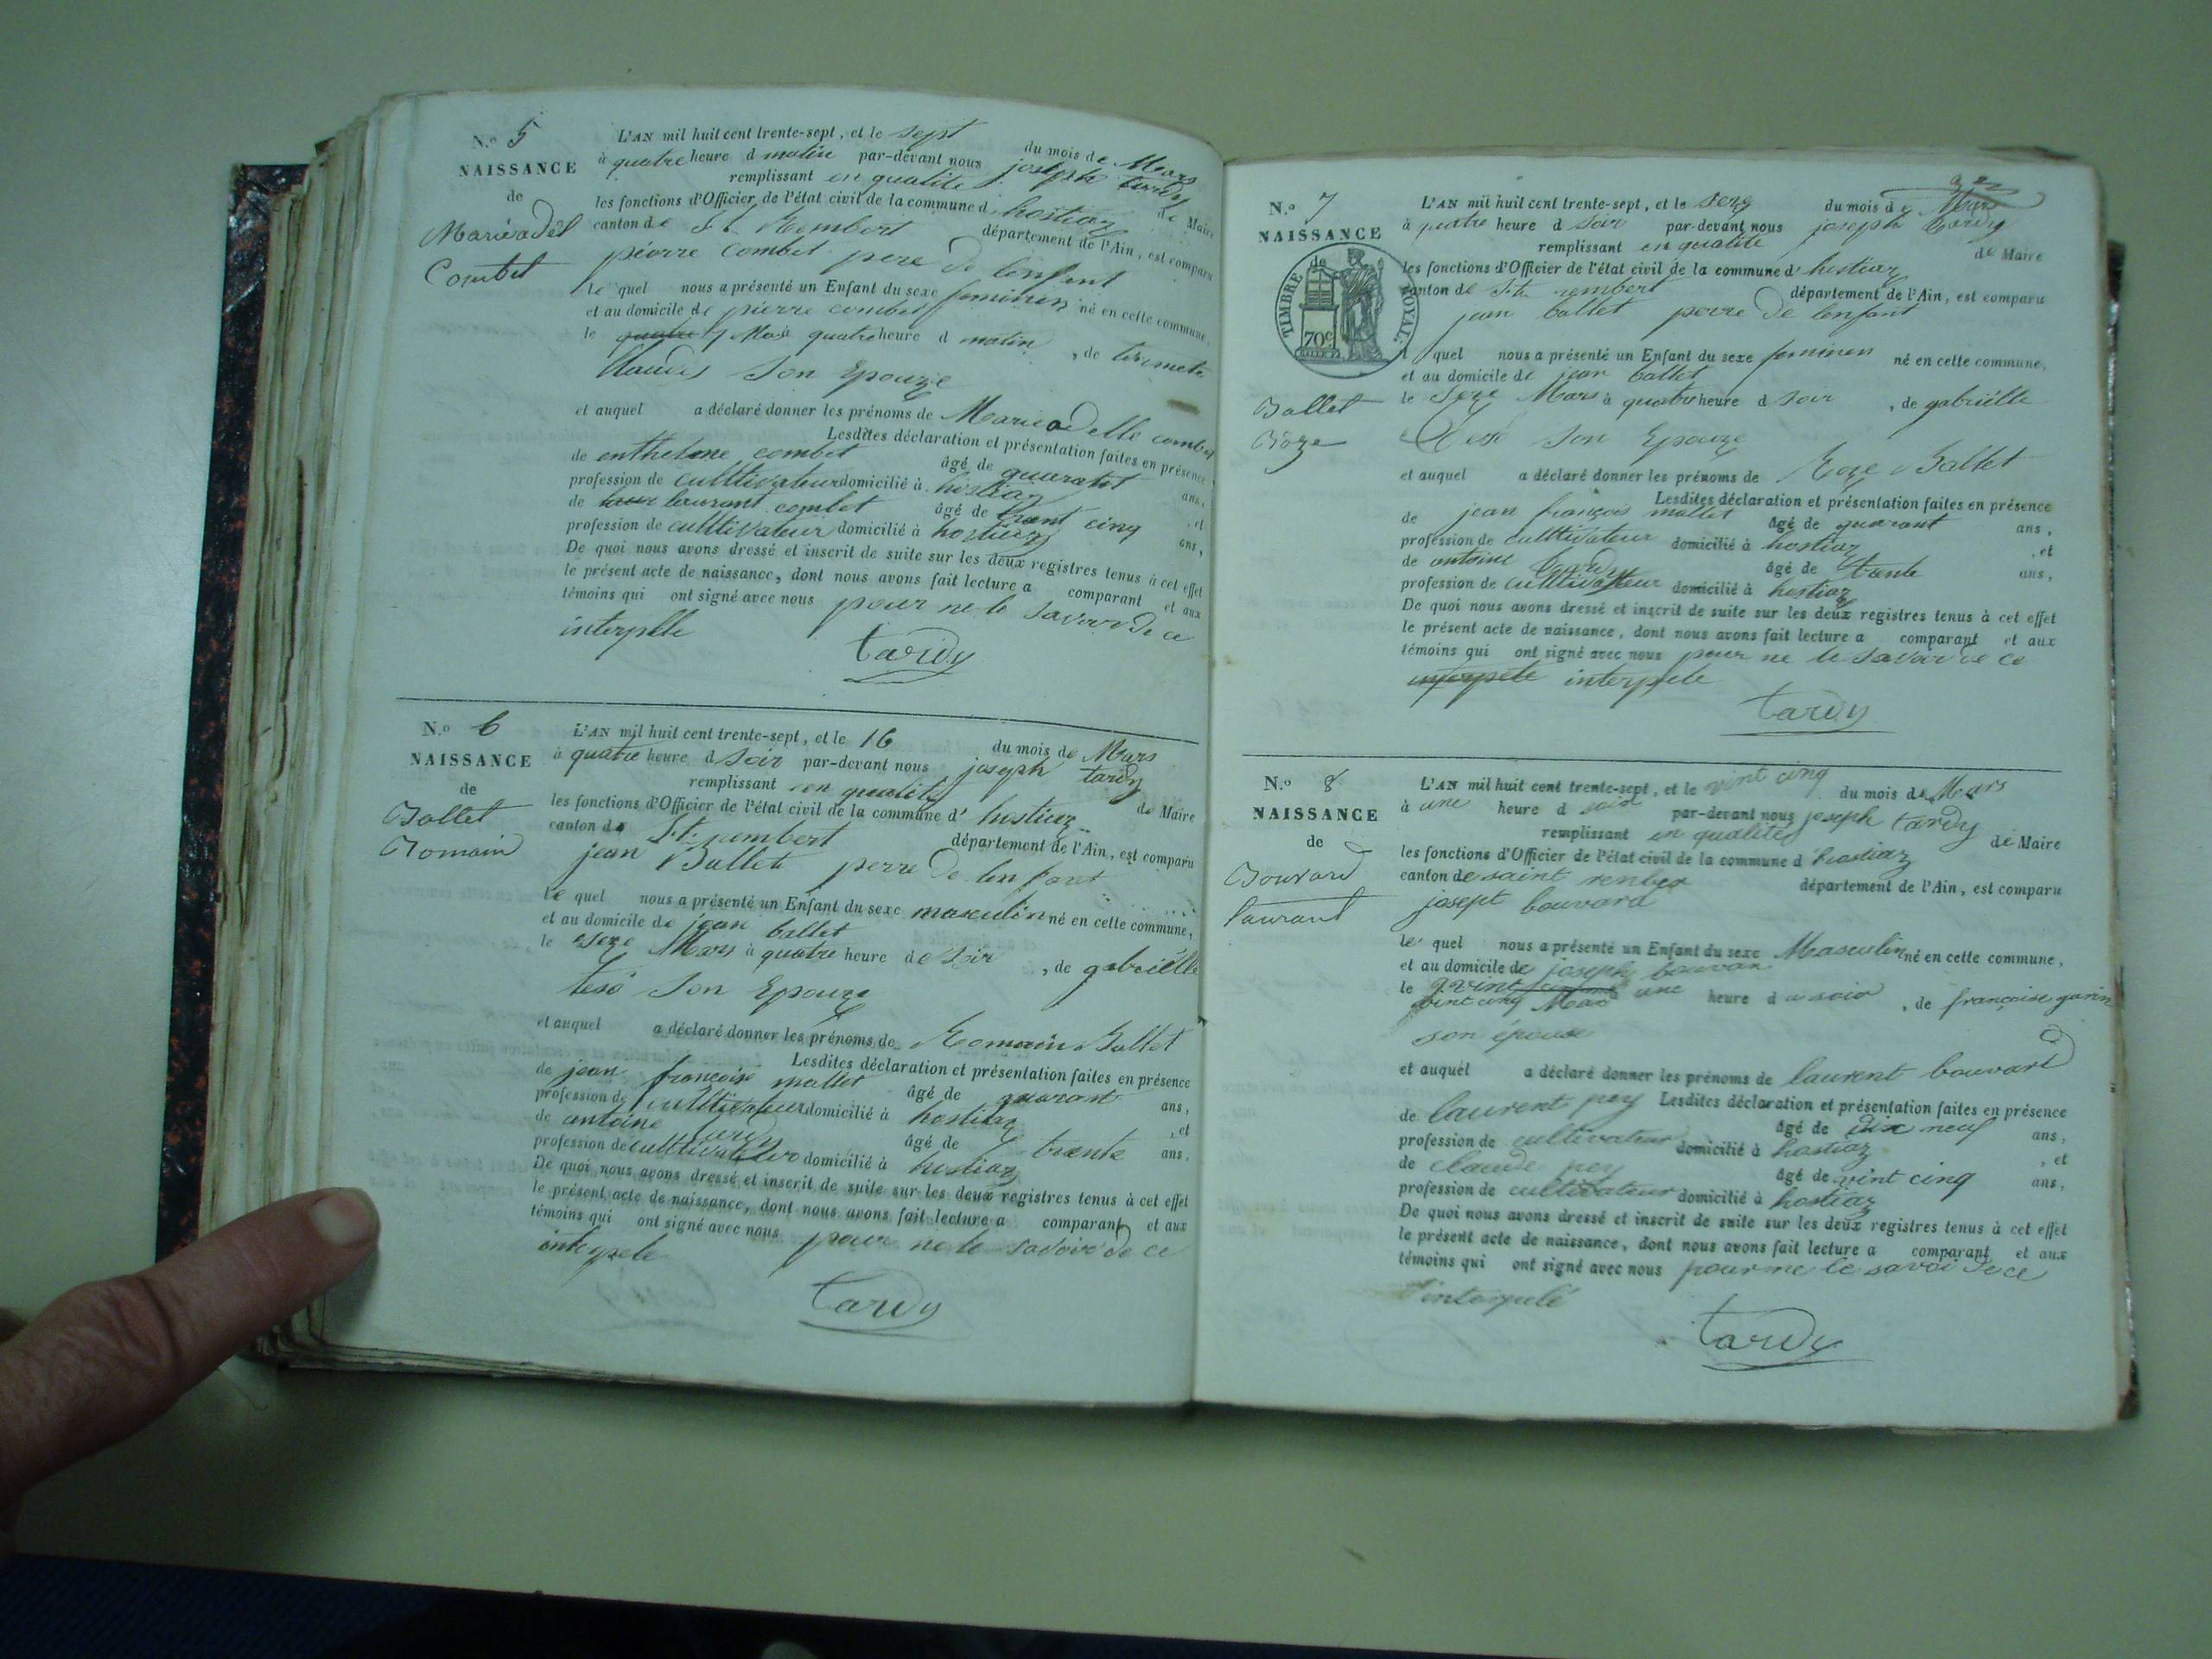 N.o 5
NAISSANCE
de
Marie adel
Combet
L'AN mil huit cent trente-sept, et le sept du mois de Mars
à quatre heure d matin par-devant nous joseph tardy
remplissant en qualite de Maire
les fonctions d'Officier de l'état civil de la commune d hostiaz
canton de St. Rembert département de l'Ain, est comparu
pierre combet pere de lenfant
le quel nous a présenté un Enfant du sexe feminen né en cette commune,
et au domicile de pierre combet
le 7 Mars à quatre heure d matin , de
Claudes son Epouze
et auquel a déclaré donner les prénoms de Marie adelle combet
Lesdites déclaration et présentation faites en présence
de enthelme combet âgé de ans,
profession de culltivateur domicilié à hostiaz , et
de laurant combet âgé de trent cinq ans,
profession de culltivateur domicilié à hostiaz
De quoi nous avons dressé et inscrit de suite sur les deux registres tenus à cet effet
le présent acte de naissance, dont nous avons fait lecture a comparant et aux
témoins qui ont signé avec nous pour ne le savoir de ce
interpelle
tardy
N.o 6
NAISSANCE
de
Ballet
Romain
L'AN mil huit cent trente-sept, et le 16 du mois de Mars
à quatre heure d soir par-devant nous joseph tardy
remplissant en qualite de Maire
les fonctions d'Officier de l'état civil de la commune d' hostiaz
canton de St. rembert département de l'Ain, est comparu
jean Ballet perre de lenfant
le quel nous a présenté un Enfant du sexe masculin né en cette commune,
et au domicile de jean ballet
le seze Mars à quatre heure de soir , de gabrielle
tesö son Epouze
et auquel a déclaré donner les prénoms de Romain Ballet
Lesdites déclaration et présentation faites en présence
de jean françois mallet âgé de quarant ans,
profession de culltivateur domicilié à hostiaz , et
de antoine tardy âgé de trente ans,
profession de culltivateur domicilié à hostiaz
De quoi nous avons dressé et inscrit de suite sur les deux registres tenus à cet effet
le présent acte de naissance, dont nous avons fait lecture a comparant et aux
témoins qui ont signé avec nous pour ne le savoir de ce
interpele
tardy
N.o 7
NAISSANCE
de
TIMBRE ROYAL
70c
Ballet
Roze
L'AN mil huit cent trente-sept, et le seze du mois de Mars
à quatre heure d soir par-devant nous joseph tardy
remplissant en qualite de Maire
les fonctions d'Officier de l'état civil de la commune d' hostiaz
canton de St. rembert département de l'Ain, est comparu
jean ballet perre de lenfant
l quel nous a présenté un Enfant du sexe feminen né en cette commune,
et au domicile de jean ballet
le seze Mars à quatre heure d soir , de gabriélle
son Epouze
et auquel a déclaré donner les prénoms de Roze Ballet
Lesdites déclaration et présentation faites en présence
de jean françois mallet âgé de quarant ans,
profession de culltivateur domicilié à hostiaz , et
de antoine tardy âgé de trente ans,
profession de culltivateur domicilié à hostiaz
De quoi nous avons dressé et inscrit de suite sur les deux registres tenus à cet effet
le présent acte de naissance, dont nous avons fait lecture a comparant et aux
témoins qui ont signé avec nous pour ne le savoir de ce
interpele interpele
tardy
N.o 8
NAISSANCE
de
Bouvard
laurant
L'AN mil huit cent trente-sept, et le vint cinq du mois de Mars
à une heure d soir par-devant nous joseph tardy
remplissant en qualité de Maire
les fonctions d'Officier de l'état civil de la commune d hostiaz
canton de saint département de l'Ain, est comparu
josept bouvard
le quel nous a présenté un Enfant du sexe Masculin né en cette commune,
et au domicile de joseph bouvar
le vint cinq Mars à une heure d u soir , de françoise garin
son épouse
et auquel a déclaré donner les prénoms de laurent bouvard
Lesdites déclaration et présentation faites en présence
de laurent pey âgé de dix neuf ans,
profession de cultivateur domicilié à hostiaz , et
de claude pey âgé de vint cinq ans,
profession de cultivateur domicilié à hostiaz
De quoi nous avons dressé et inscrit de suite sur les deux registres tenus à cet effet
le présent acte de naissance, dont nous avons fait lecture a comparant et aux
témoins qui ont signé avec nous pour ne le savoi de ce
interpelé
tardy